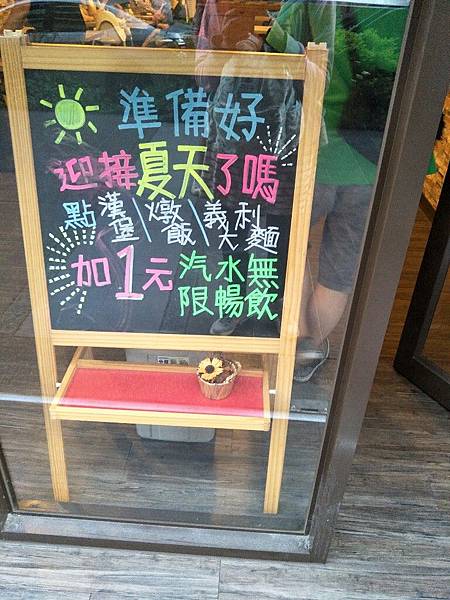 準備好
迎接夏天了嗎
點漢堡\燉飯\義大利麵
加1元汽水無限暢飲